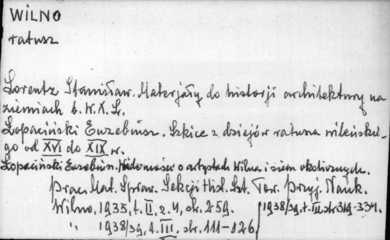 WILNO
ratusz
Lorentz Stanisław. Materjały do historji architektury na
ziemiach b. W.X.L.
Łopaciński Euzebiusz. Szkice z dziejów ratusza wileńskie-
go od XVI do XIX w.
Łopaciński Euzebiusz. Wiadomości o artystach Wilna i ziem okolicznych.
Prac i Mat. Spraw. Sekcji Hist. Szt. Tow. Przyj. Nauk.
Wilno, 1935, t. II, z. 4, str. 259. / 1938/39, t. III, str. 319-334.
" 1938/39, t. III, str. 111-126/